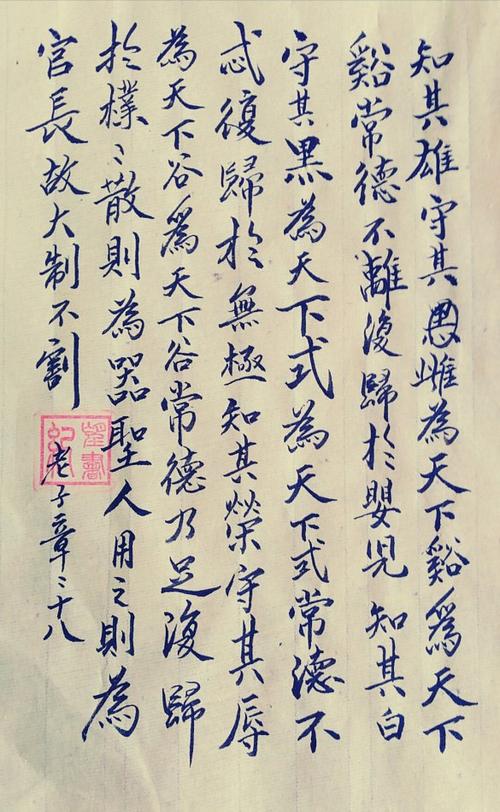 知其雄守其雌為天下谿為天下
谿常德不離復歸於嬰児知其白
守其黑為天下式為天下式常德不
忒復歸於無極知其榮守其辱
為天下谷為天下谷常德乃足復歸
於樸〻散則為器聖人用之則為
官長故大制不割
老子章二十八